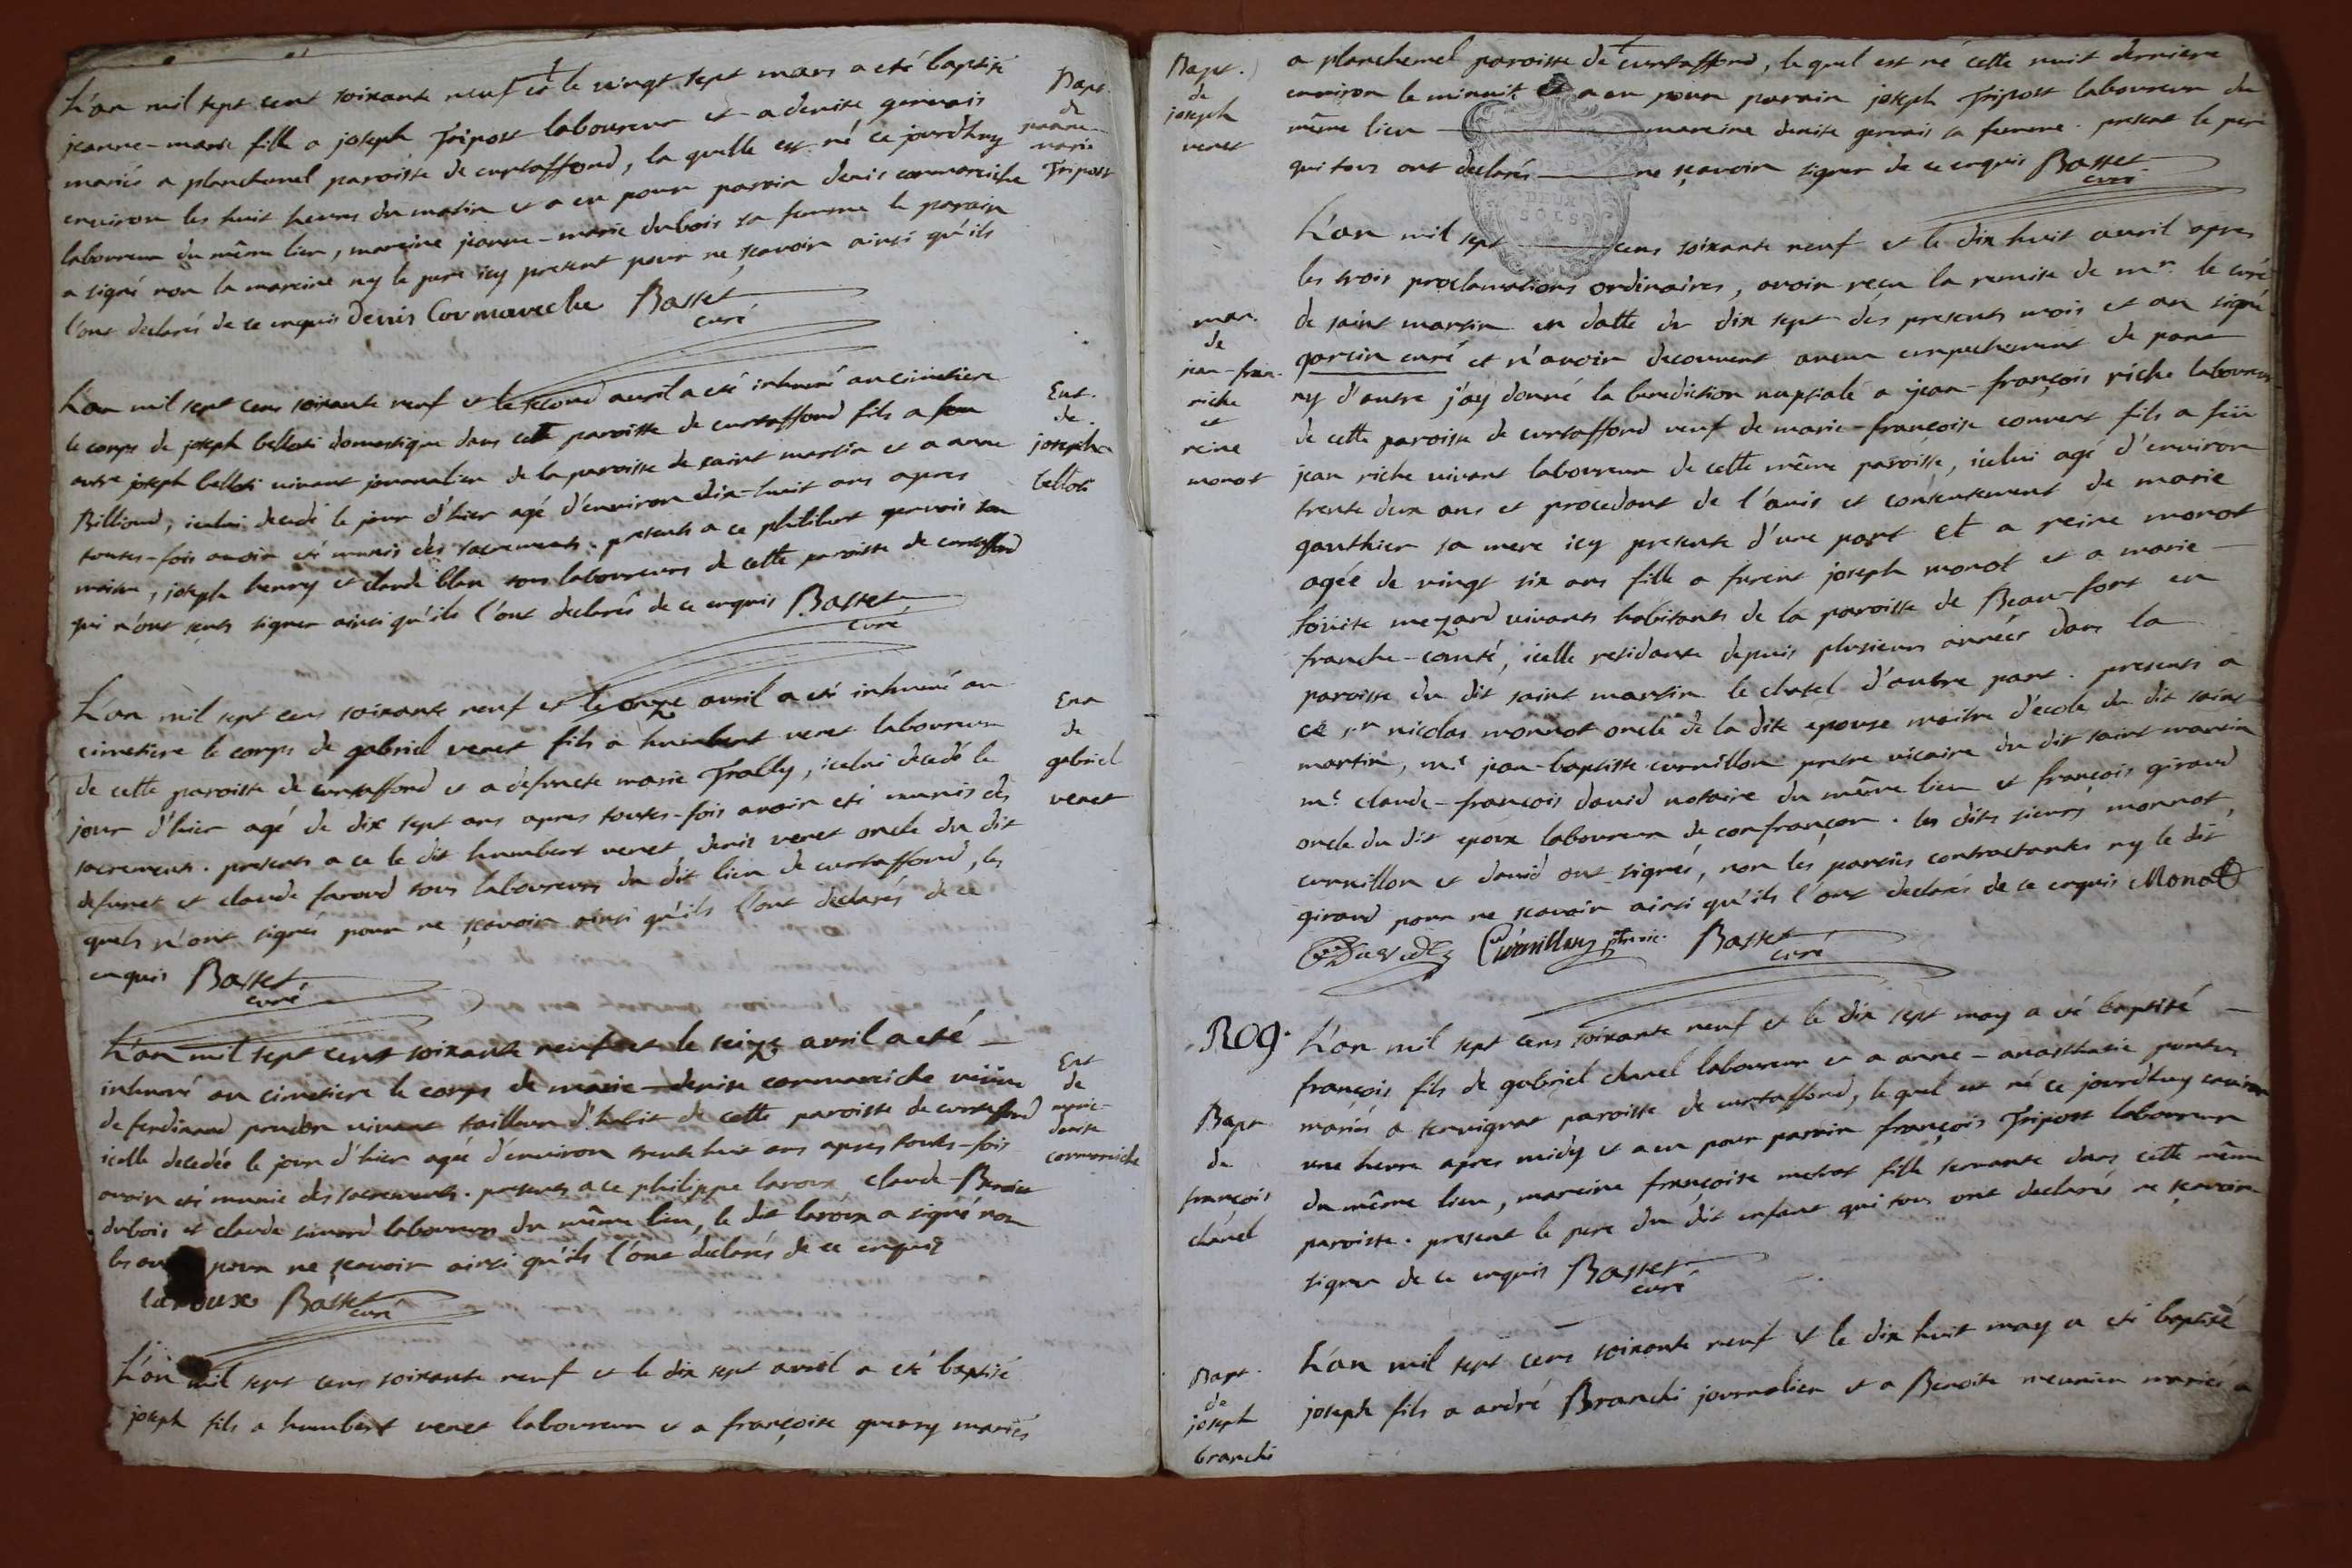 L'an mil sept cent soixante neuf et le vingt sept mars a eté baptisé
jeanne-marie fille a joseph Tripost laboureur et a denise gervais
mariés a planchemel paroisse de curtaffond, la quelle est né ce jourdhuy
environ les huit heures du matin et a eu pour parain denis cormareiche
laboureur du même lieu, mareine jeanne-marie dubois sa femme le parain
a signé non la mareine ny le pere icy present pour ne sçavoir ainsi qu'ils
l'ont declarés de ce enquis Denis Cormareche Basset
curé
Bapt.
de
jeanne-
marie
Tripost
L'an mil sept cens soixante neuf et le second avril a eté inhumé au cimetiere
le corps de joseph belloti domestique dans cette paroisse de curtaffond fils a feu
autre joseph belloti vivant journalier de la paroisse de saint martin et a anne
Billioud, icelui decedé le jour d'hier agé d'environ dix-huit ans apres
toutes-fois avoir eté munis des sacrements. presents a ce philibert gervais son
maitre, joseph henry et claude blan tous laboureurs de cette paroisse de curtaffond
qui n'ont sceus signer ainsi qu'ils l'ont declarés de ce enquis Basset
curé
Ent.
de
joseph
belloti
L'an mil sept cens soixante neuf et le onze avril a eté inhumé au
cimetiere le corps de gabriel venet fils a humbert venet laboureur
de cette paroisse de curtaffond et a defuncte marie Trally, icelui decedé le
jour d'hier agé de dix sept ans apres toutes-fois avoir eté munis des
sacrements. presents a ce le dit humbert venet denis venet oncle du dit
defunct et claude faraud tous laboureurs du dit lieu de curtaffond, les
quels n'ont signés pour ne sçavoir ainsi qu'ils l'ont declarés de ce
enquis Basset
curé
Ent
de
gabriel
venet
L'an mil sept cens soixante neuf et le seize avril a eté
inhumé au cimetiere le corps de marie-denise cormareiche veüve
de ferdinand prudon vivant tailleur d'habit de cette paroisse de curtaffond
icelle decedée le jour d'hier agée d'environ trente huit ans apres toutes-fois
avoir eté munie des sacrements. presents a ce philippe laroux claude-Benoist
dubois et claude simard laboureurs du même lieu, le dit laroux a signé non
les pour ne sçavoir ainsi qu'ils l'ont declarés de ce enquis
laroux Basset
curé
Ent
de
marie-
denise
cormareiche
L'an mil sept cens soixante neuf et le dix sept avril a eté baptisé
joseph fils a humbert venet laboureur et a françoise querry mariés
Bapt.
de
joseph
venet
a planchemel paroisse de curtaffond, le quel est né cette nuit derniere
environ le minuit et a eu pour parain joseph Tripost laboureur du
même lieu mareine denise gervais sa femme. present le pere
qui tous ont declarés ne sçavoir signer de ce enquis Basset
curé
DEUX
SOLS
L'an mil sept cens soixante neuf et le dix huit avril apres
les trois proclamations ordinaires, avoir reçu la remise de mr. le curé
de saint martin en datte du dix sept des presents mois et an signé
garcin curé et n'avoir decouvert aucun empechement de part
ny d'autre j'ay donné la benediction nuptiale a jean-françois riche laboureur
de cette paroisse de curtaffond veuf de marie-françoise convert fils a feü
jean riche vivant laboureur de cette même paroisse, icelui agé d'environ
trente deux ans et procedant de l'avis et consentement de marie
gauthier sa mere icy presente d'une part et a reine monot
agée de vingt six ans fille a furent joseph monot et a marie-
loüise mezard vivants habitants de la paroisse de Beau-fort en
franche-comté, icelle residante depuis plusieurs années dans la
paroisse du dit saint martin le chatel d'autre part. presents a
ce sr nicolas monnot oncle de la dite epouse maitre d'ecole du dit saint
martin, me jean-baptiste curnillon pretre vicaire du dit saint martin
me claude-françois david notaire du même lieu et françois giraud
oncle du dit epoux laboureur de confrançon. les dits sieurs monnot,
curnillon et david ont signés, non les parties contractantes ny le dit
giraud pour ne sçavoir ainsi qu'ils l'ont declarés de ce enquis Monot
David Curnillon ptre vic. Basset
curé
mar.
de
jean-fran.
riche
et
reine
monot
ROg.
L'an mil sept cens soixante neuf et le dix sept may a eté baptisé
françois fils de gabriel chanel laboureur et a anne-anasthasie
mariés a servignat paroisse de curtaffond, le quel est né ce jourdhuy environ
une heure apres midy et a eu pour parain françois Tripost laboureur
du même lieu, mareine françoise metrat fille servante dans cette même
paroisse. present le pere du dit enfant qui tous ont declarés ne sçavoir
signer de ce enquis Basset
curé
Bapt
de
françois
chanel
L'an mil sept cens soixante neuf et le dix huit may a eté baptisé
joseph fils a andré Branchi journalier et a Benoite meunier mariés a
Bapt.
de
joseph
branchi